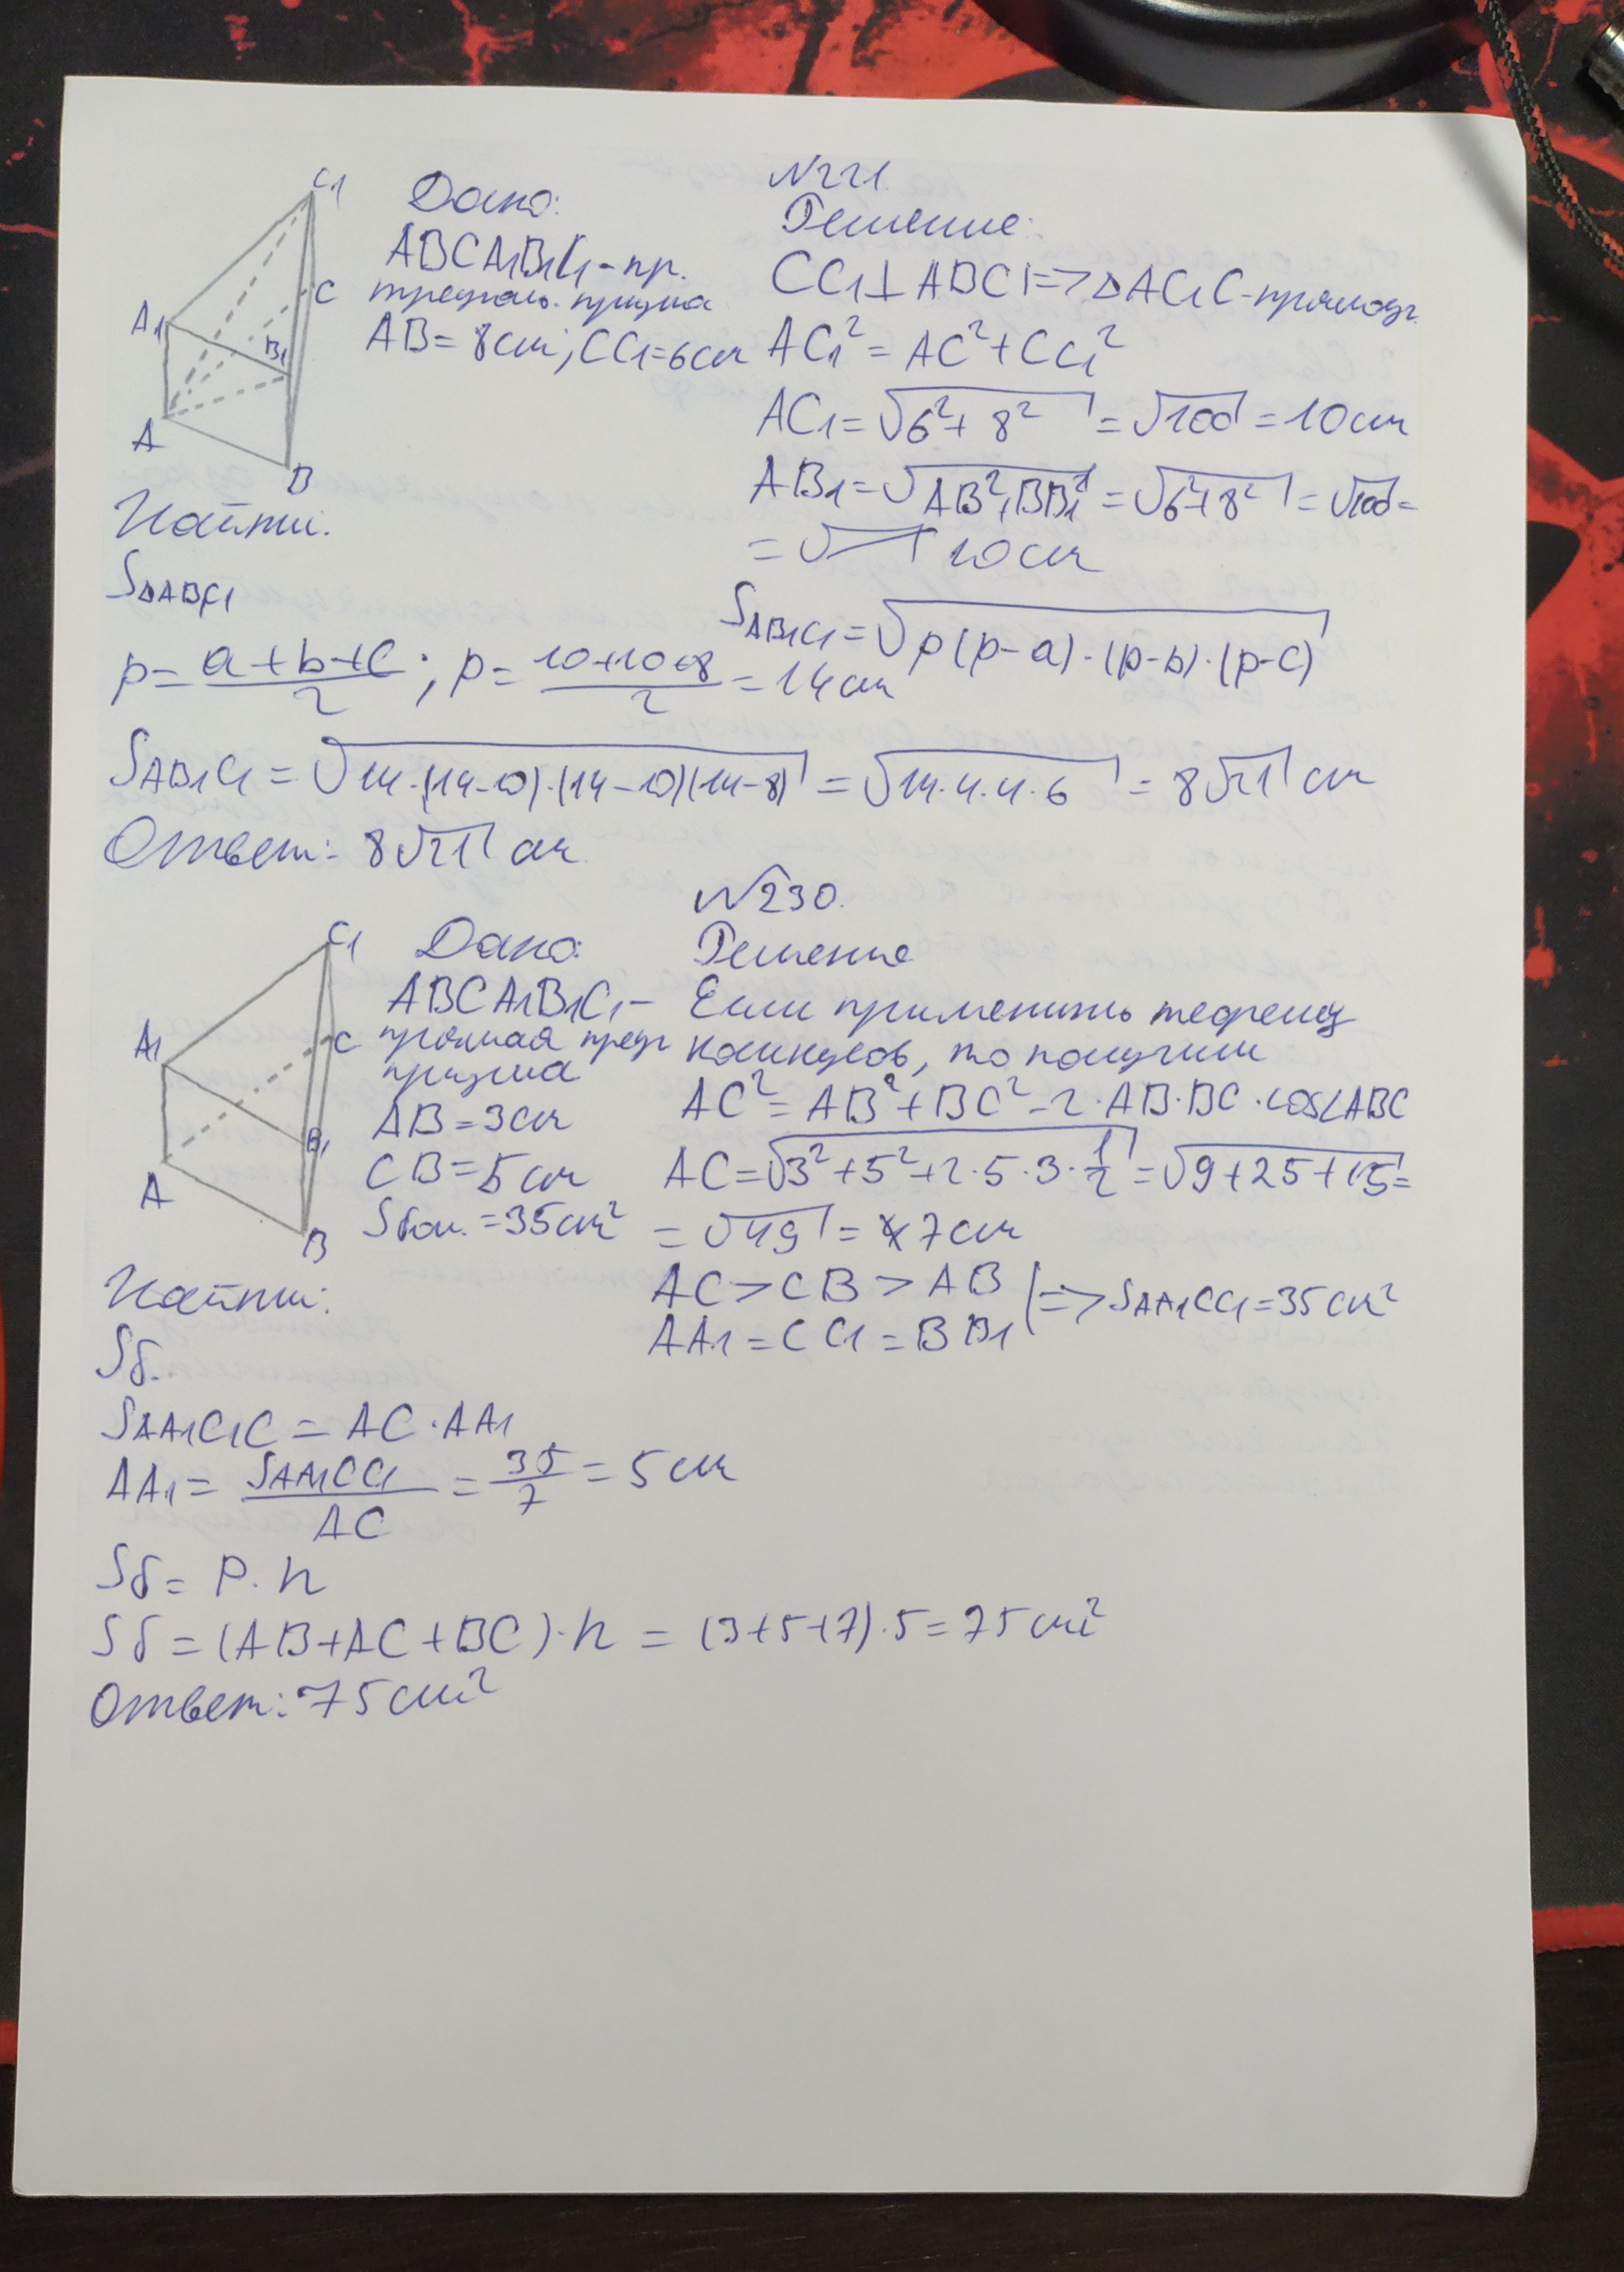 N221.
Дано:
Решение:
ABCA1B1C1-пр.
треугол. призма
AB=8см; CC1=6см
CC1⊥ABC|=>△AC1C-прямоуг.
AC1²=AC²+CC1²
AC1=√6²+8²=√100=10см
AB1=√AB²+BB1²=√6²+8²=√100=
=√ 10см
C1
A1
C
B1
A
B
Найти:
S△AB1C1
SAB1C1=√p(p-a)·(p-b)·(p-c)
p=a+b+c/2; p=10+10+8/2=14см
SAB1C1=√14·(14-10)·(14-10)(14-8)=√14·4·4·6=8√21см
Ответ: 8√21см
N230.
Дано:
Решение
ABCA1B1C1-
прямая треуг
призма
AB=3см
CB=5см
Sбок.=35см²
Если применить теорему
косинусов, то получим
AC²=AB²+BC²-2·AB·BC·cos∠ABC
AC=√3²+5²+2·5·3·1/2=√9+25+15=
=√49=7см
AC>CB>AB
AA1=CC1=BB1
|=>SAA1CC1=35см²
C1
A1
C
B1
A
B
Найти:
Sб.
SAA1C1C=AC·AA1
AA1=SAA1CC1/AC=35/7=5см
Sб=P·h
Sб=(AB+AC+BC)·h=(3+5+7)·5=75см²
Ответ: 75см²